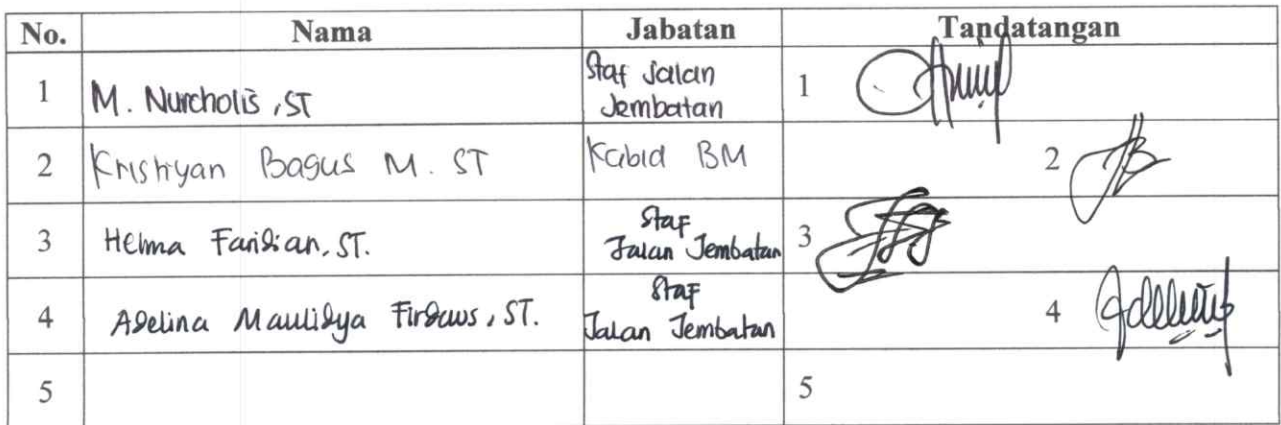 No. Nama Jabatan Tandatangan
1 M. Nurcholis, ST Staf Jalan
Jembatan 1
2 Kristiyan Bagus M. ST Kabid BM 2
3 Helma Faridian, ST. Staf
Jalan Jembatan 3
4 Adelina Maulidya Firdaus, ST. Staf
Jalan Jembatan 4
5 5